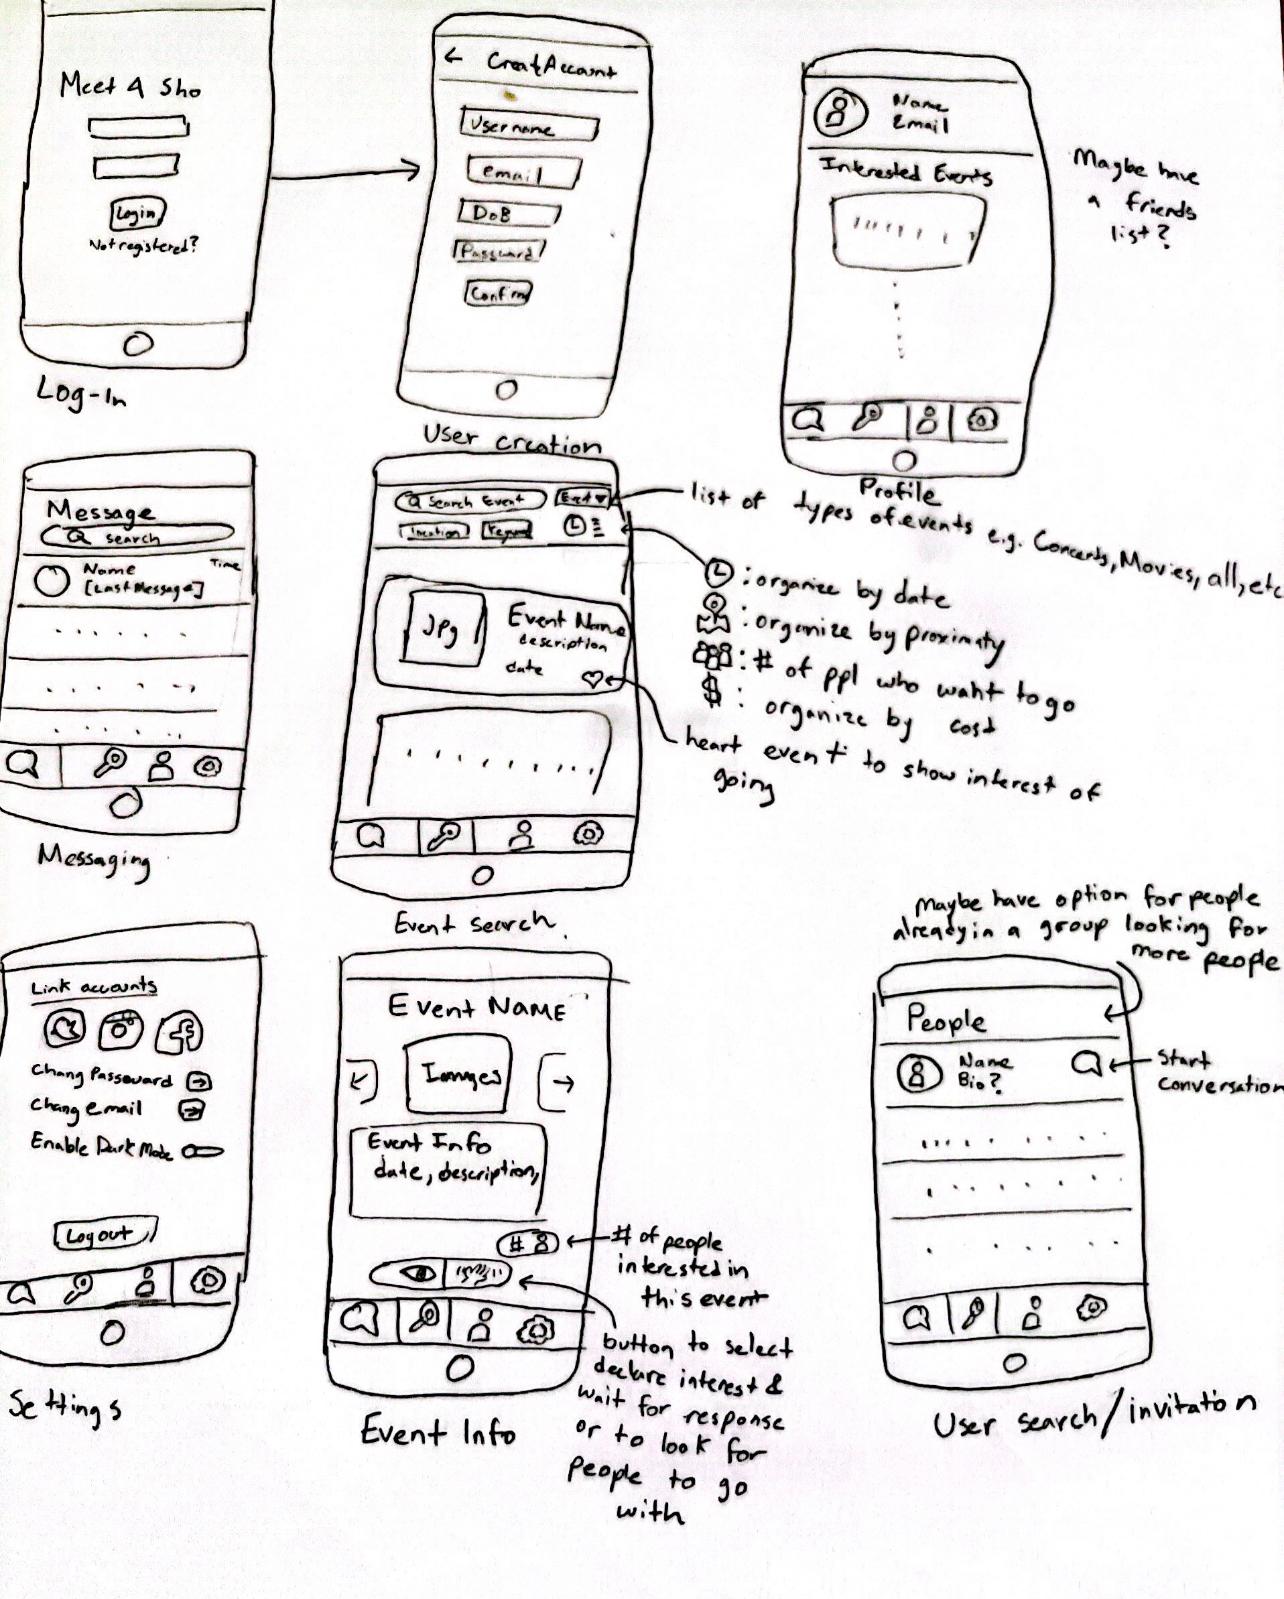 Meet 4 Sho
Login
Not registered?
Log-In
← Creat Account
Username
email
DoB
Password
Confirm
User creation
Name
Email
Interested Events
Profile
Maybe have
a friends
list?
Message
Search
Name
Time
[Last Message]
Messaging
Search Event
Event ▼
location
Event Name
Jpg
description
date
Event search.
list of types of events e.g. Concerts, Movies, all, etc
: organize by date
: organize by proximaty
: # of ppl who want to go
$ : organize by cost
heart event to show interest of
going
Link accounts
Chang Password →
Chang email →
Enable Dark Mode
Logout
Settings
Event NAME
Images
←
→
Event Info
date, description,
#
Event Info
# of people
interested in
this event
button to select
declare interest &
wait for response
or to look for
people to go
with
maybe have option for people
already in a group looking for
more people
People
Name
Bio?
Start
conversation
User search/invitation